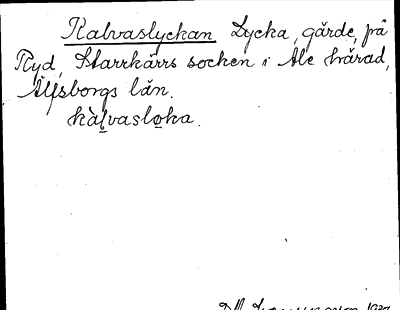 Kalvaslyckan Lycka, gärde, på
Ryd, Starrkärrs socken i Ale härad,
Älfsborgs län.
kàl̲vaslo̲ka.